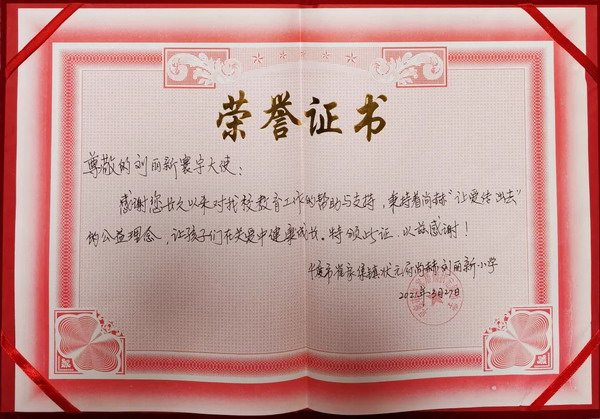 荣誉证书
尊敬的刘丽新寰宇大使：
感谢您长久以来对我校教育工作的帮助与支持，秉持着尚赫“让爱传出去”
的公益理念，让孩子们在关爱中健康成长。特颁此证，以兹感谢！
崔家集镇状元府尚赫刘丽新小学
2021年5月27日